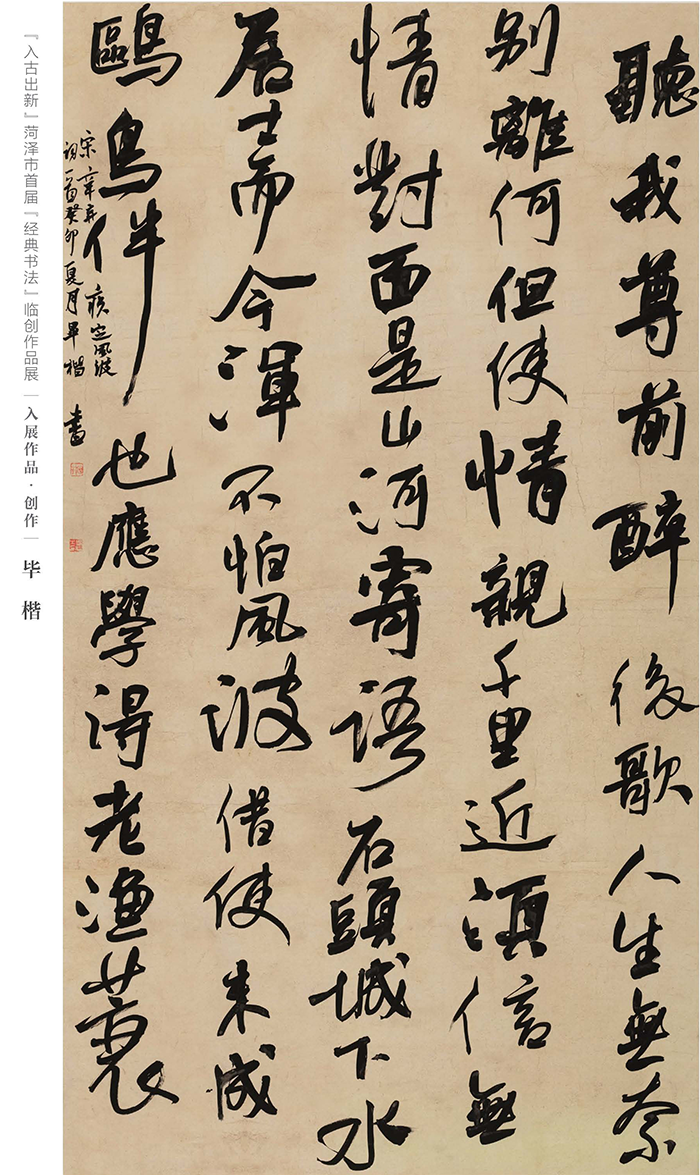 聽我尊前醉後歌人生無奈
别離何但使情親千里近須信無
情對面是山河寄语石頭城下水
居士而今渾不怕風波借使未成
鷗鳥伴也應學得老漁蓑
宋辛弃疾定風波
词一首癸卯夏月畢楷書
『入古出新』菏泽市首届『经典书法』临创作品展｜入展作品·创作｜毕楷